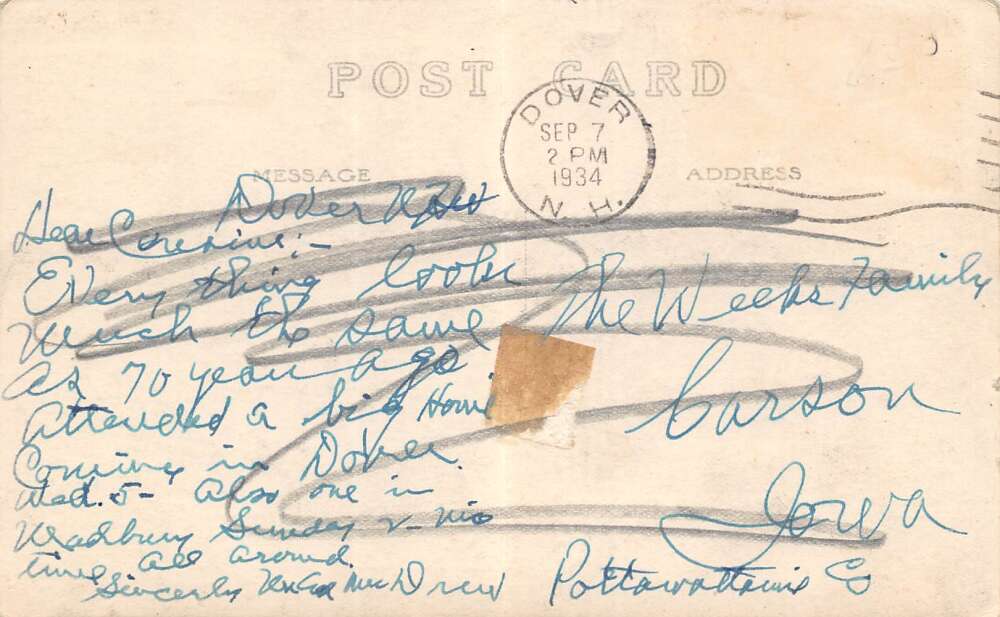 POST CARD
DOVER
SEP 7
2 PM
1934
N. H.
MESSAGE
ADDRESS
Dover
Dear Cousins:-
Every thing looks
much the same
as 70 years ago
Attended a big Home
Coming in Dover
Wed. 5- Also one in
Madbury Sunday 2-
times all around.
Sincerely Drew
The Weeks Family
Carson
Iowa
Pottawattamie Co